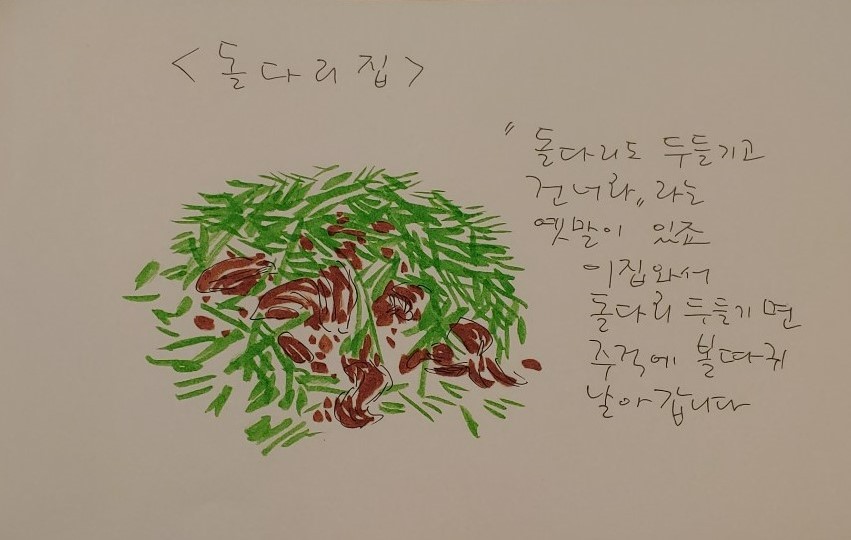 <돌다리집>
"돌다리도 두들기고
건너라" 라는
옛말이 있죠
이집와서
돌다리 두들기면
주걱에 볼따귀
날아갑니다